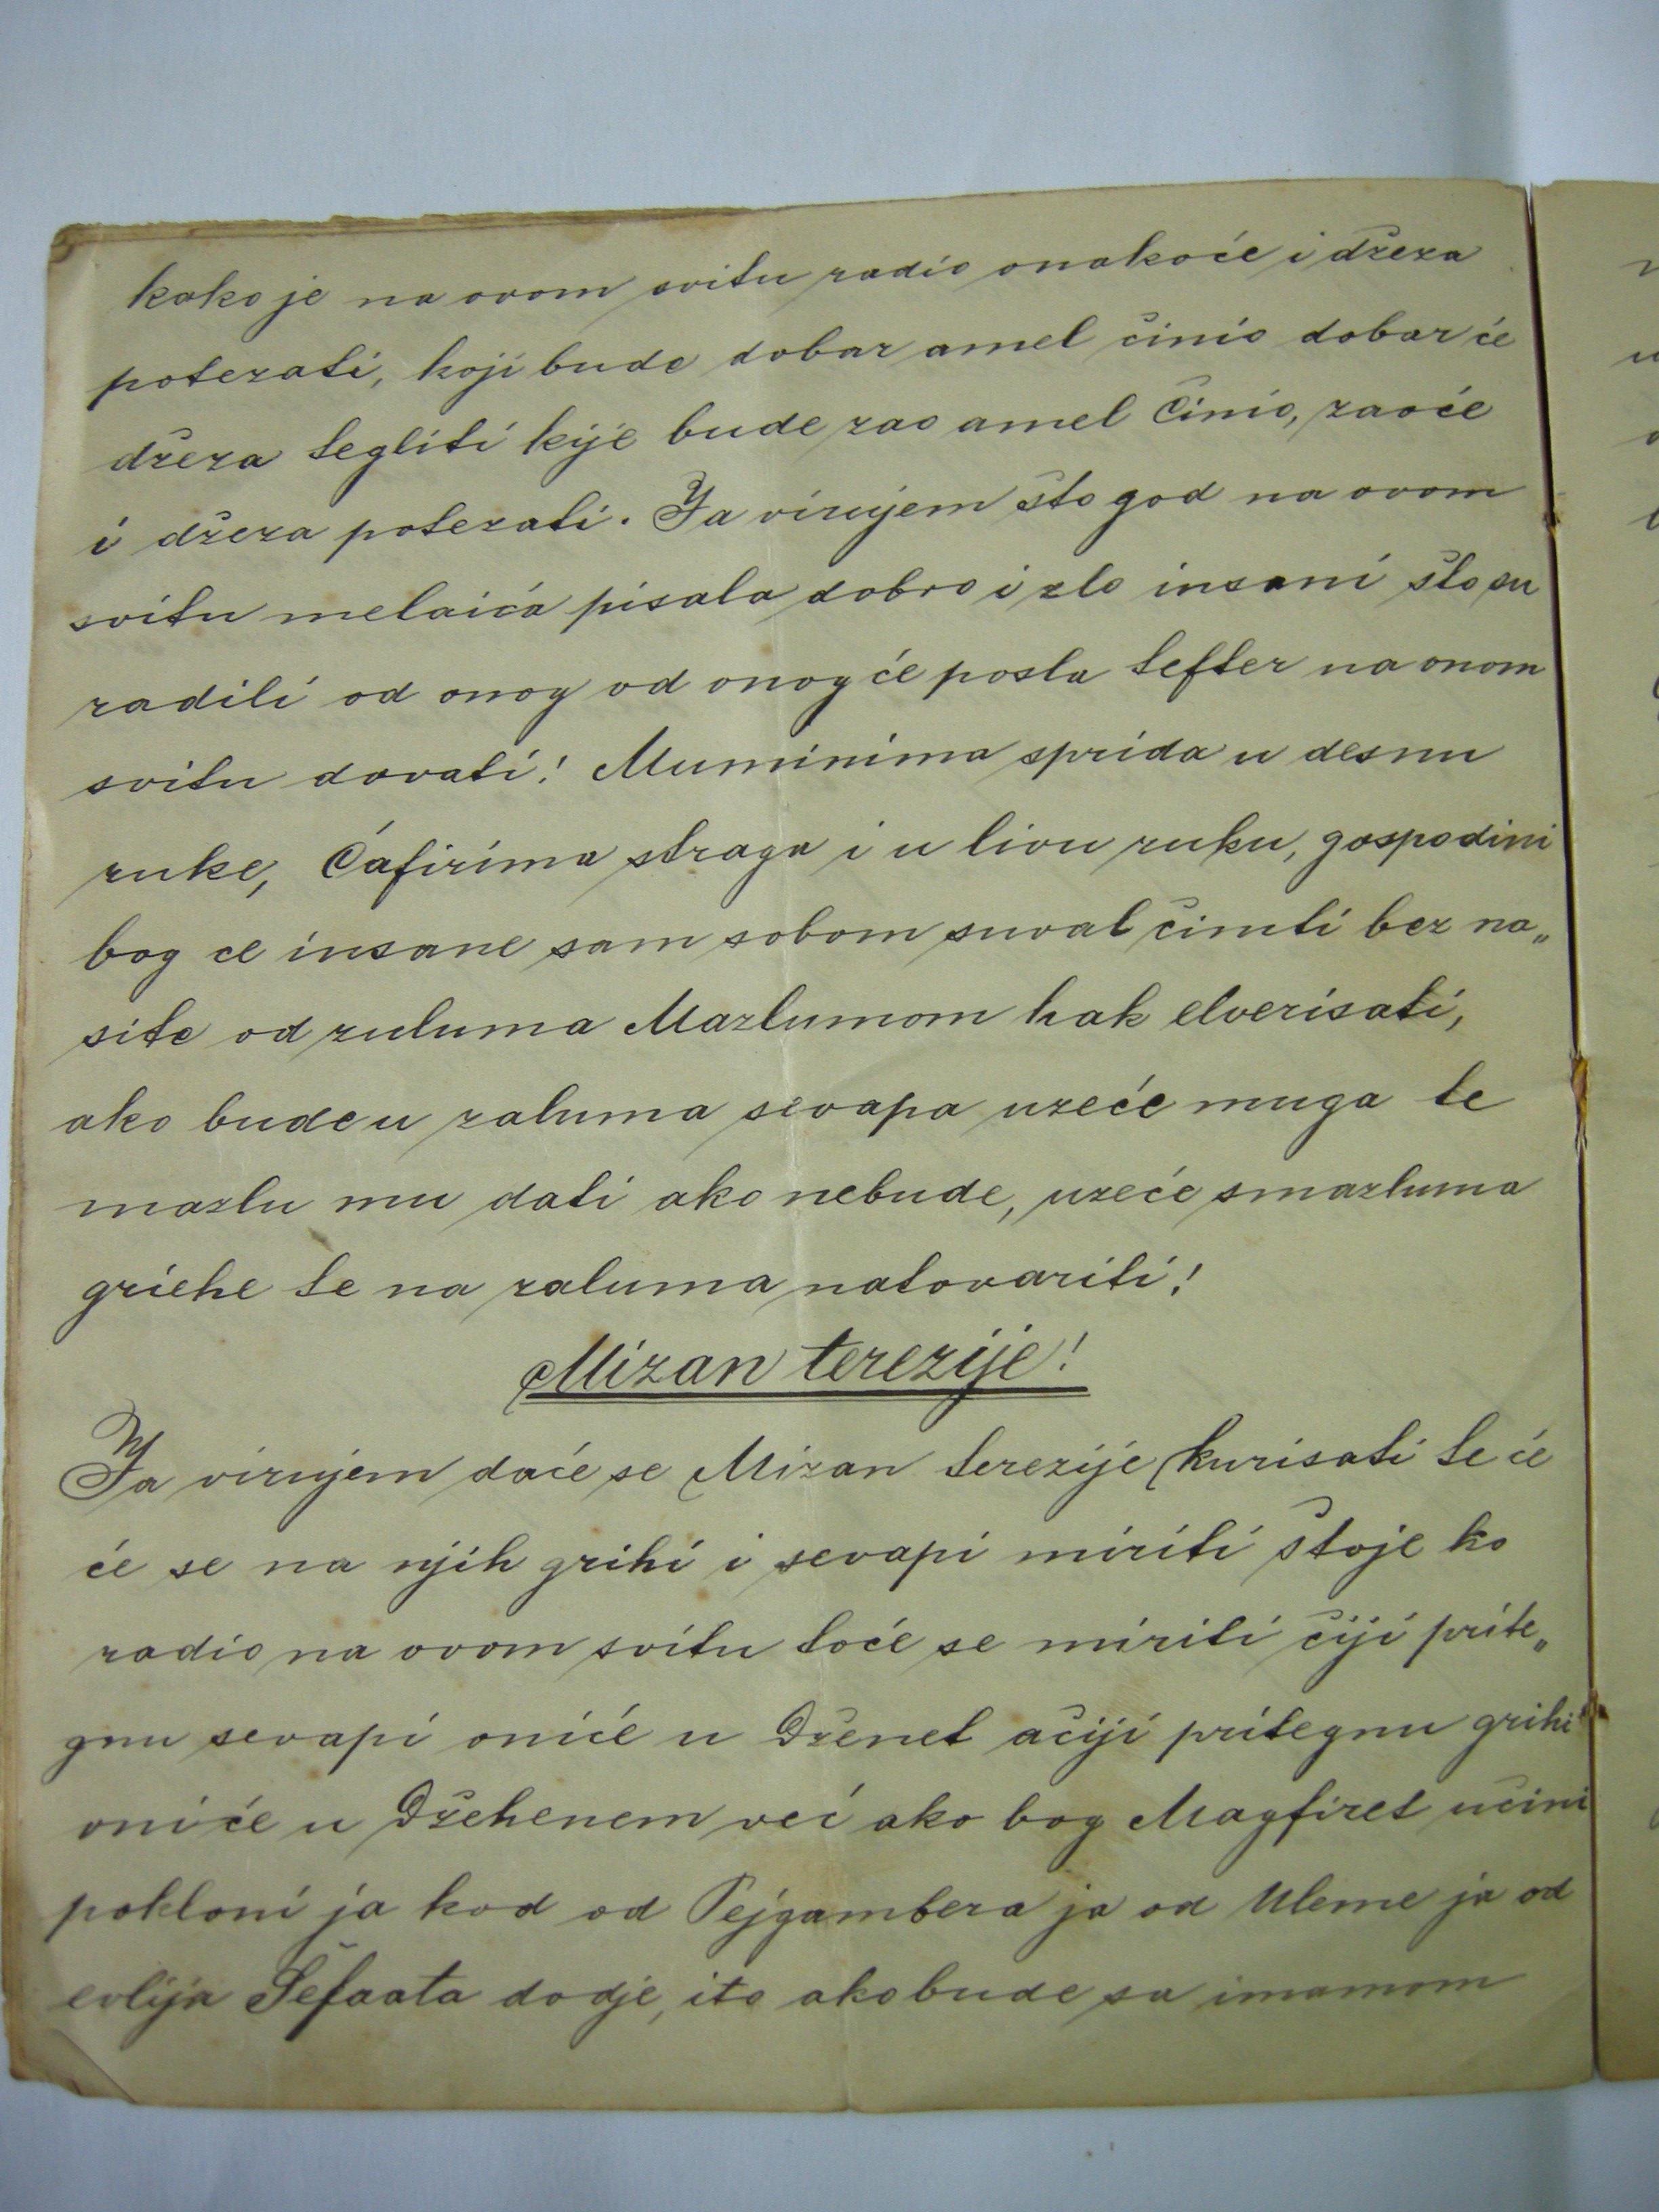 kako je na ovom svitu radio onakoće i džeza
potezati, koji bude dobar amel činio dobar će
džeza tegliti kije bude zao amel činio, zaoće
i džeza potezati. Ja virujem što god na ovom
svitu melaića pisala dobro i zlo insani što su
radili od onog od onog će posla tefter na onom
svitu davati! Muminima sprida u desnu
ruke, Ćafirima straga i u livu ruku, gospodini
bog ce insane sam sobom suval činiti bez na„
site od zuluma Mazlumom hak elverisati,
ako bude u zaluma sevapa uzeće muga te
mazlu mu dati ako nebude, uzeće smazluma
griehe te na zaluma natovariti!
Mizan terezije!
Ja virujem daće se Mizan terezije kurisati te će
će se na njih grihi i sevapi miriti štoje ko
radio na ovom svitu toće se miriti čiji prite„
gnu sevapi oniće u Dženet ačiji pritegnu grihi
oniće u Džehenem već ako bog Magfiret učini
pokloni ja kod od Pejgambera ja od Uleme ja od
evlija Šefaata dodje, ito ako bude sa imamom